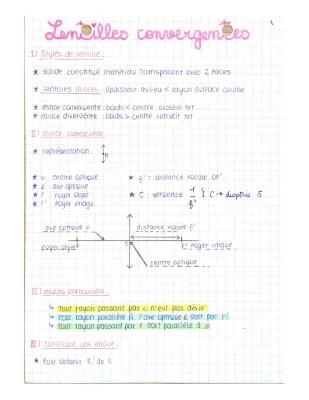 Lentilles convergentes
I.) Styles de lentille :
★ solide constitué matériau transparent avec 2 faces
★ lentilles minces : épaisseur milieu < rayon surface courbe
★ mince convergente : bords < centre grossit txt
★ mince divergente : bords > centre rétrécit txt
II.) mince convergente :
★ représentation : O
★ O : centre optique ★ f' : distance focale OF'
★ Δ : axe optique ★ C : vergence 1/f' C → dioptrie δ
★ F : foyer objet
★ F' : foyer image
axe optique distance focale f'
foyer objet F O F' foyer image
centre optique
III.) rayons particuliers :
↳ Tout rayon passant par O n'est pas dévié
↳ Tout rayon parallèle à l'axe optique Δ sort par F'
↳ Tout rayon passant par F sort parallèle à Δ
construire une image :
★ Pour obtenir B' de B